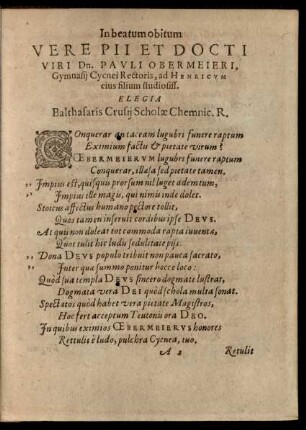 In beatum obitum
VERE PII ET DOCTI
VIRI Dn. PAVLI OBERMEIERI,
Gymnasij Cycnei Rectoris, ad HENRICVM
eius filium studiosiss.
ELEGIA
Balthasaris Crusij Scholæ Chemnic. R.
COnquerar an taceam lugubri funere raptum
Eximium factu & pietate virum?
ŒBERMEIERVM lugubri funere raptum
Conquerar, illæsa sed pietate tamen.
„ Impius est, quisquis prorsum nil luget ademtum,
„ Impius ille magis, qui nimis inde dolet.
Stoicus affectus humano pectore tollit,
Quos tamen inseruit cordibus ipse DEVS.
At quis non doleat tot commoda rapta iuventa,
Quot tulit hic ludis sedulitate pijs.
„ Dona DEVS populo tribuit non pauca sacrato,
„ Inter quæ summo ponitur hocce loco:
Quòd sua templa DEVS sincero dogmate lustrat,
Dogmata vera DEI quòd schola multa sonat.
Spectatos quòd habet vera pietate Magistros,
Hoc fert acceptum Teutonis ora DEO.
In quibus eximios ŒBERMEIERVS honores
Rettulit è ludo, pulchra Cycnea, tuo,
A 2 Retulit